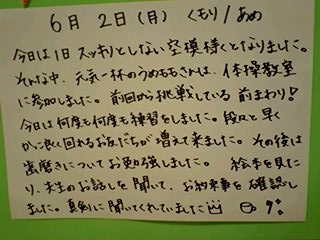 6月 2日(月) くもり/あめ
今日は1日スッキリとしない空模様となりました。
そんな中、元気一杯のうめももさんは、体操教室
に参加しました。前回から挑戦している前まわり!
今日は何度も何度も練習をしました。段々と早く
かっこ良く回れるお友だちが増えて来ました。その後は
歯磨きについてお勉強しました。 絵本を見た
り、先生のお話しを聞いて、お約束事を確認し
ました。真剣に聞いてくれていました